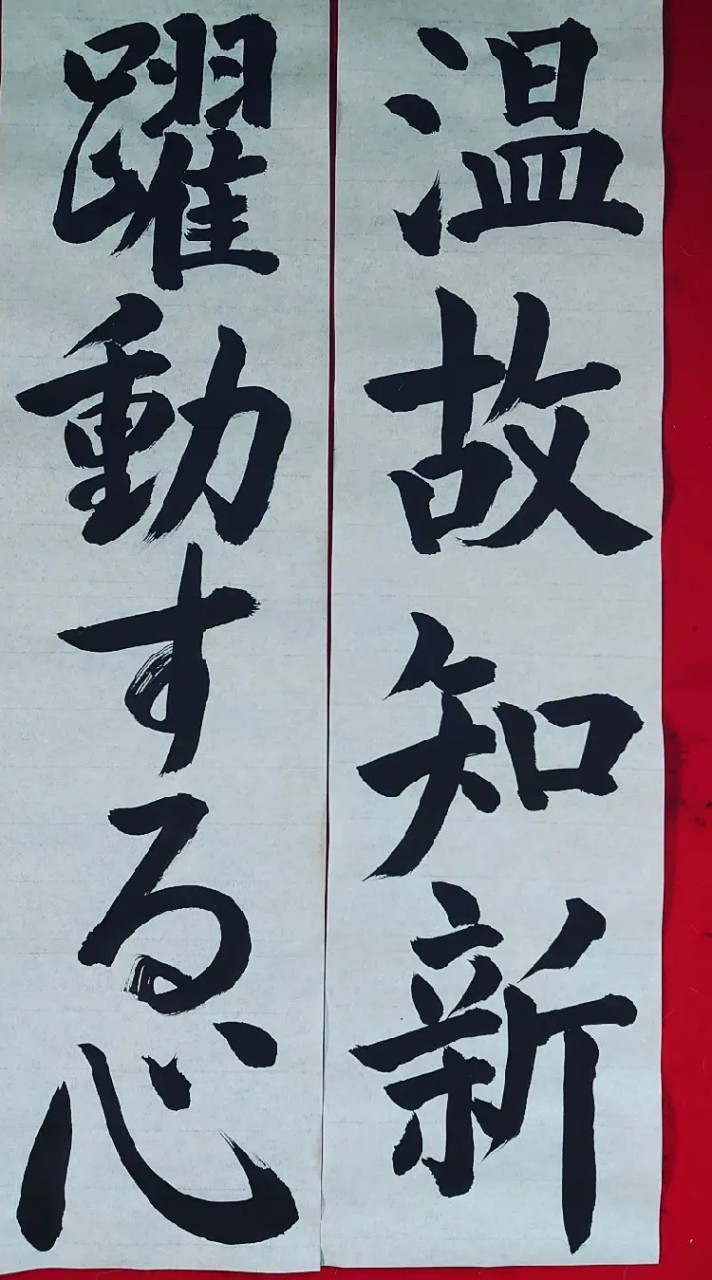 温故知新
躍動する心